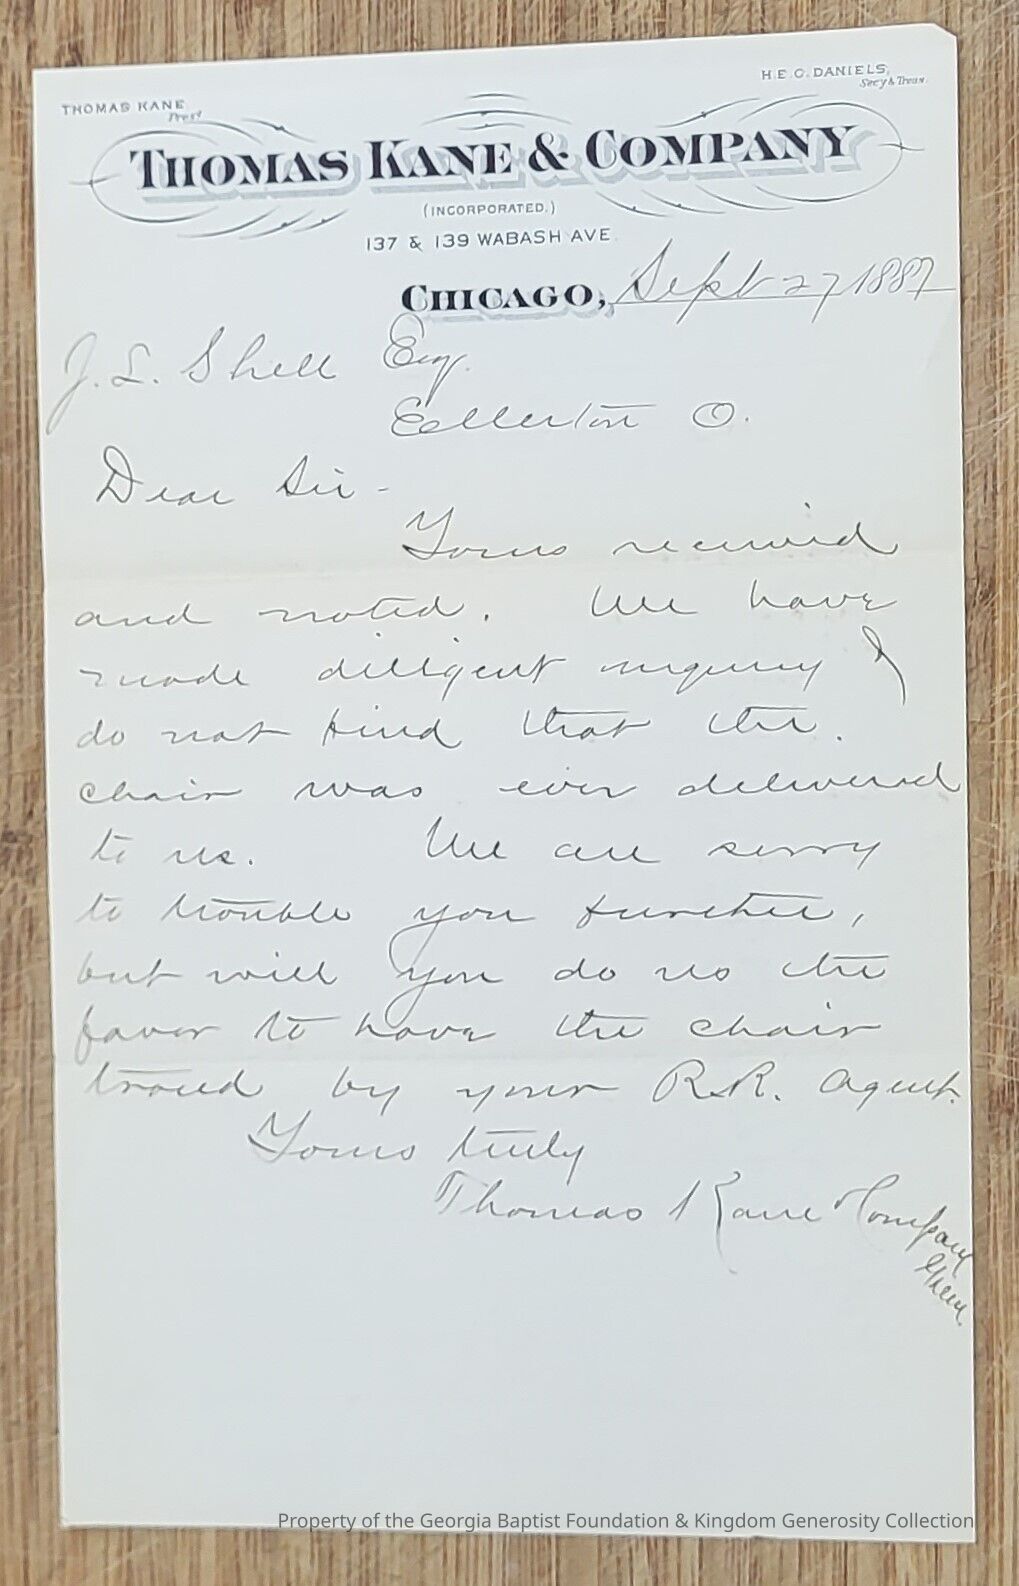 THOMAS KANE, Prest
H.E.C. DANIELS, Secy & Treas.
THOMAS KANE & COMPANY
(INCORPORATED.)
137 & 139 WABASH AVE.
CHICAGO, Sept 27 1887
J. L. Shell Esq.
Ellerton O.
Dear Sir -
Yours received
and noted. We have
made diligent inquiry &
do not find that the
chair was ever delivered
to us. We are sorry
to trouble you further,
but will you do us the
favor to have the chair
traced by your R.R. Agent.
Yours truly
Thomas Kane & Company
Property of the Georgia Baptist Foundation & Kingdom Generosity Collection